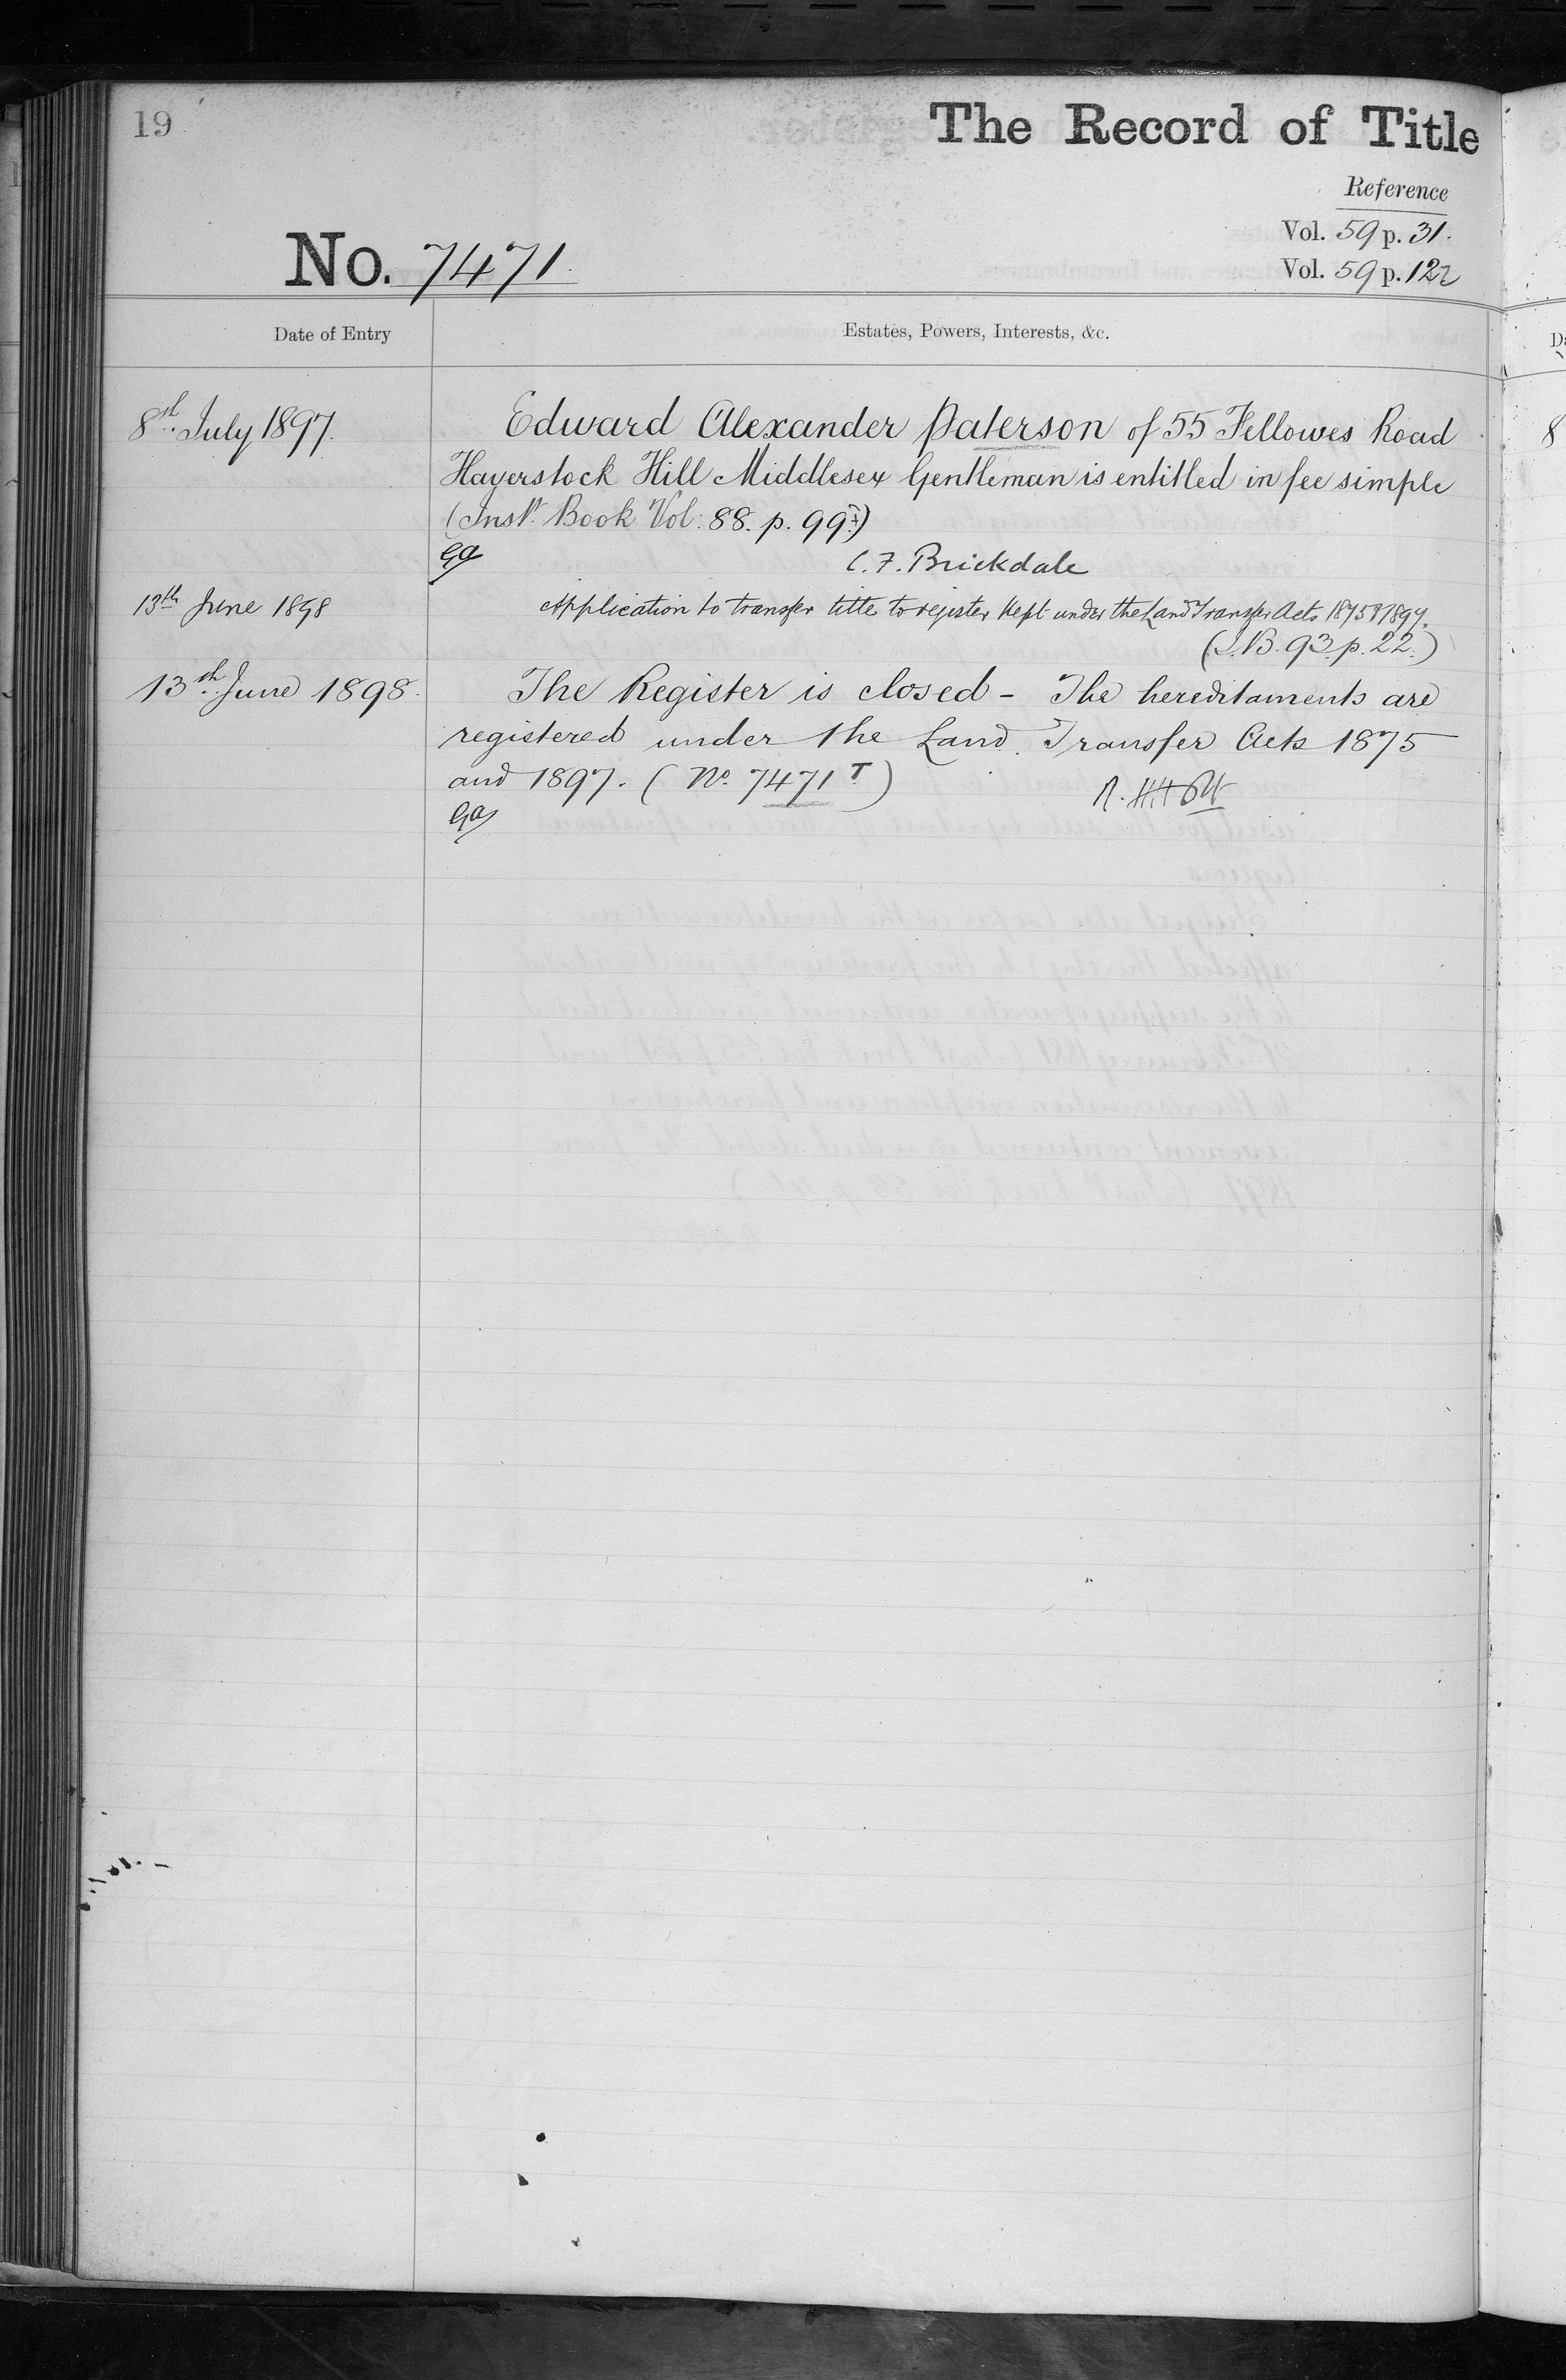 19
The Record of Title
Reference
Vol. 59 p. 31.
No. 7471.
Vol. 59 p. 122
Date of Entry
Estates, Powers, Interests, &c.
8th July 1897.
Edward Alexander Paterson of 55 Fellowes Road
Haverstock Hill Middlesex Gentleman is entitled in fee simple
(Inst. Book Vol: 88. p. 99
C. F. Brickdale
13th June 1898
Application to transfer title to register kept under the Land Transfer Acts 1875 & 1897.
(I.B. 93. p. 22.)
13th June 1898.
The Register is closed - The hereditaments are
registered under the Land Transfer Acts 1875
and 1897. (No. 7471 T)